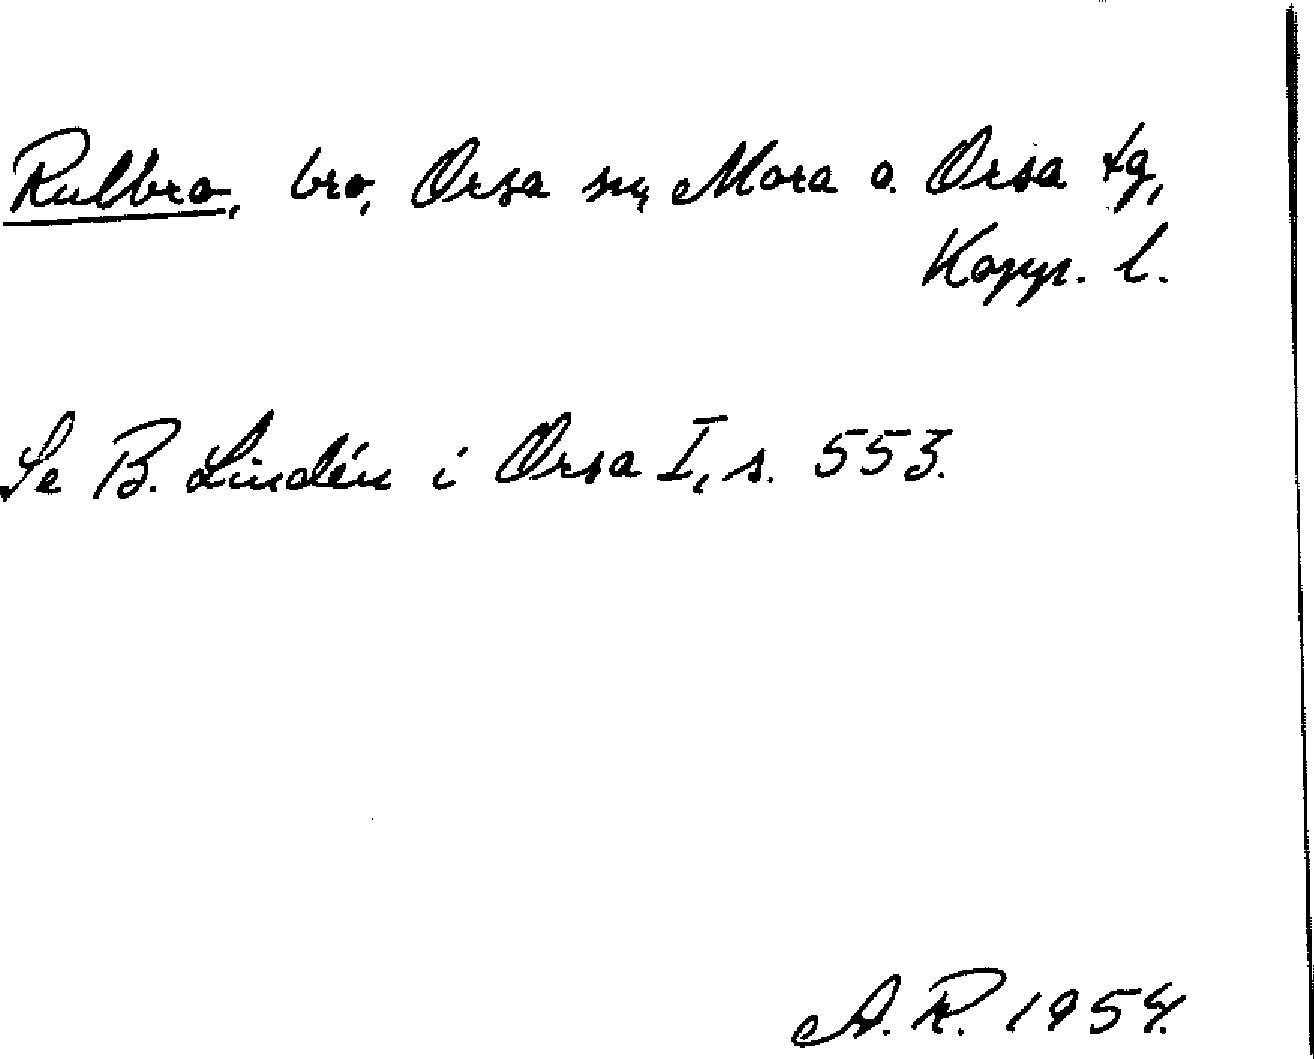 Rulbro, bro, Orsa sn, Mora o. Orsa tg,
Kopp. l.
Se B. Lindén i Orsa I, s. 553.
A. R. 1954.